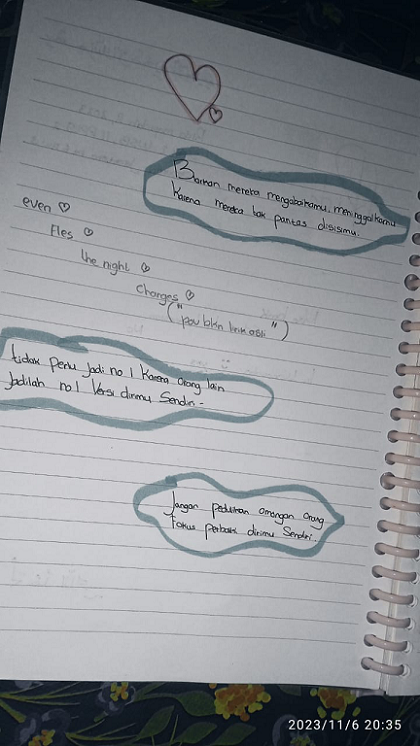 Biarkan mereka mengabaikanmu, meninggalkanmu
Karena mereka tak pantas disisimu.
even
Fles
the night
Changes
("pov bkn lirik asli")
tidak perlu jadi no 1 Karena orang lain
Jadilah no 1 Versi dirimu Sendiri -
Jangan pedulikan omongan orang
Fokus perbaiki dirimu Sendiri.
2023/11/6 20:35